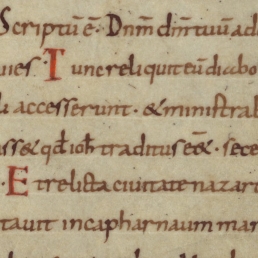 Scriptū ē. Dnm̄ dm̄ tuū ad
uies. Tunc reliquit eū diabo
li accesserunt. & ministrab
ss& qd̄ ioh̄ traditus eē&. sece
. Et relicta ciuitate nazar
tauit incapharnaum mar